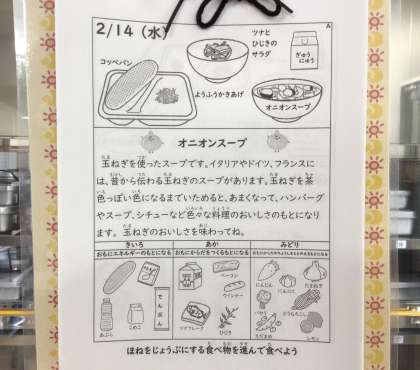 2/14（水）
A
ツナと
ひじきの
サラダ
ぎゅう
にゅう
コッペパン
ようふうかきあげ
オニオンスープ
オニオンスープ
玉ねぎを使ったスープです。イタリアやドイツ、フランスに
は、昔から伝わる玉ねぎのスープがあります。玉ねぎを茶
色っぽい色になるまでいためると、あまくなって、ハンバーグ
やスープ、シチューなど色々な料理のおいしさのもとになり
ます。玉ねぎのおいしさを味わってね。
きいろ あか みどり
おもにエネルギーのもとになる おもにからだをつくるもとになる
パン
でんぷん
あぶら
こめこ
ベーコン
ウインナー
ツナフレーク
ひじき
にんじん
にんにく
たまねぎ
パセリ
とうもろこし
えだまめ
レモン
ほねをじょうぶにする食べ物を進んで食べよう